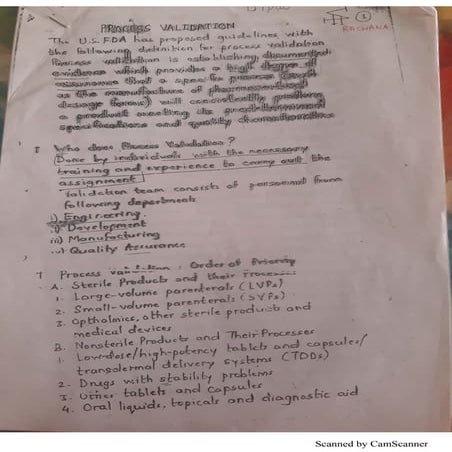 PROCESS VALIDATION
RACHANA
1
The U.S. FDA has proposed guidelines with
the following definition for process validation
Process validation is establishing documented
evidence which provides a high degree of
assurance that a specific process (such
as the manufacture of pharmaceutical
dosage forms) will consistently produce
a product meeting its predetermined
specifications and quality characteristics
Who does Process Validation?
Done by individuals with the necessary
training and experience to carry out the
assignment
Validation team consists of personnel from
following departments
i) Engineering
ii) Development
iii) Manufacturing
iv) Quality Assurance
Process validation : Order of Priority
A. Sterile Products and their Processes
1. Large-volume parenterals (LVPs)
2. Small-volume parenterals (SVPs)
3. Opthalmics, other sterile products and
medical devices
B. Nonsterile Products and Their Processes
1. Low-dose/high-potency tablets and capsules/
transdermal delivery systems (TDDs)
2. Drugs with stability problems
3. Other tablets and capsules
4. Oral liquids, topicals and diagnostic aid
Scanned by CamScanner